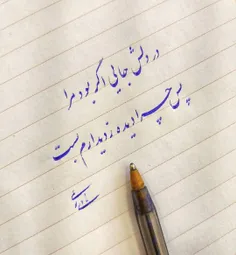 در دلش جایی اگر بود مرا
پس چرا دیده ز دیدارم بست